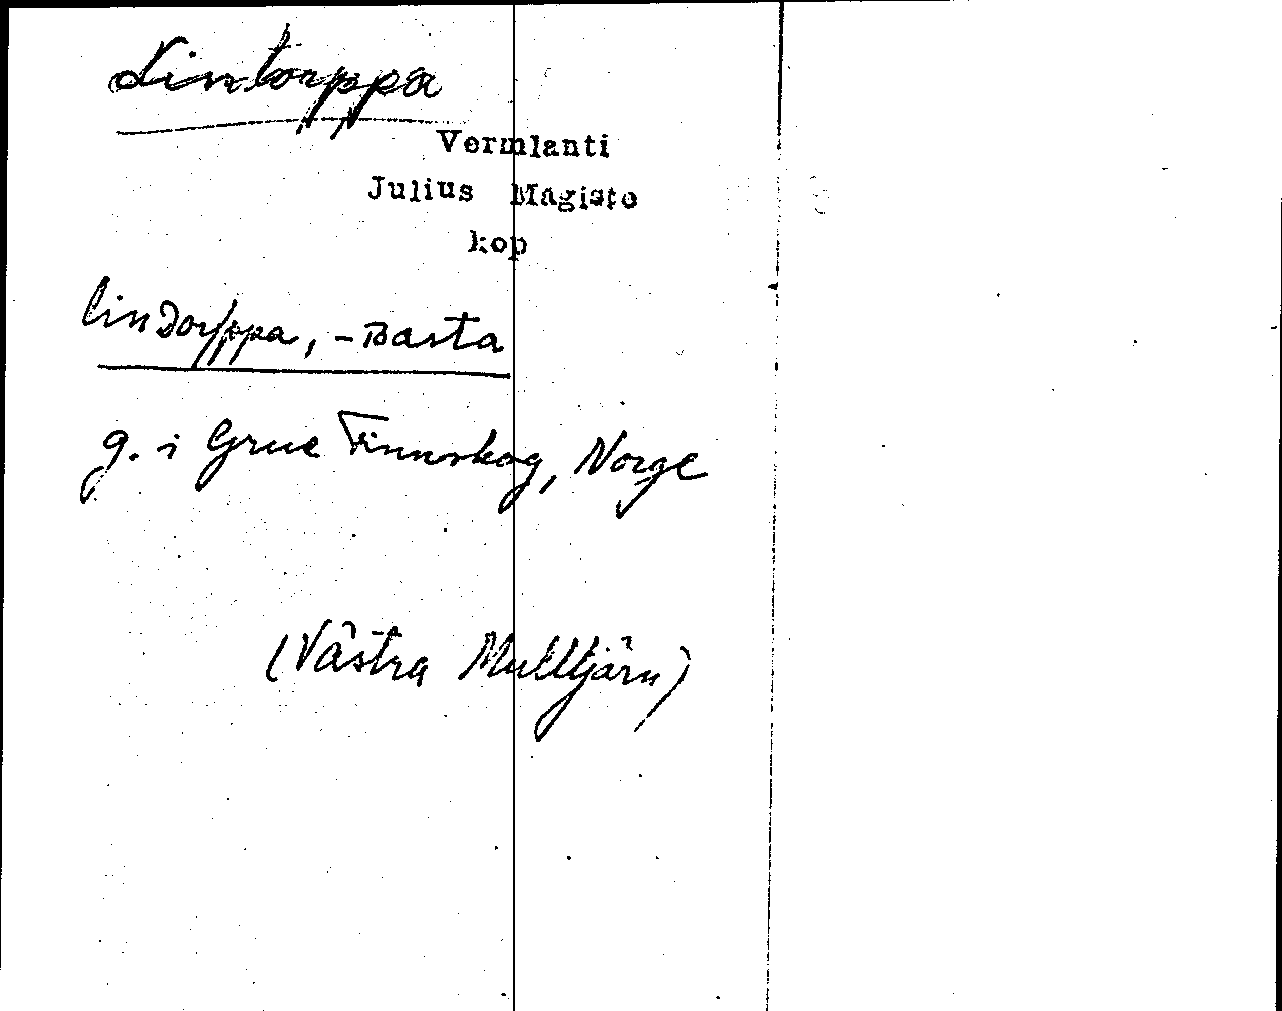 Lintorppa
Vermlanti
Julius Mägiste
kop
linDorppa, -Basta
g. i Grue Finnskog, Norge
(Västra Mulltjärn)